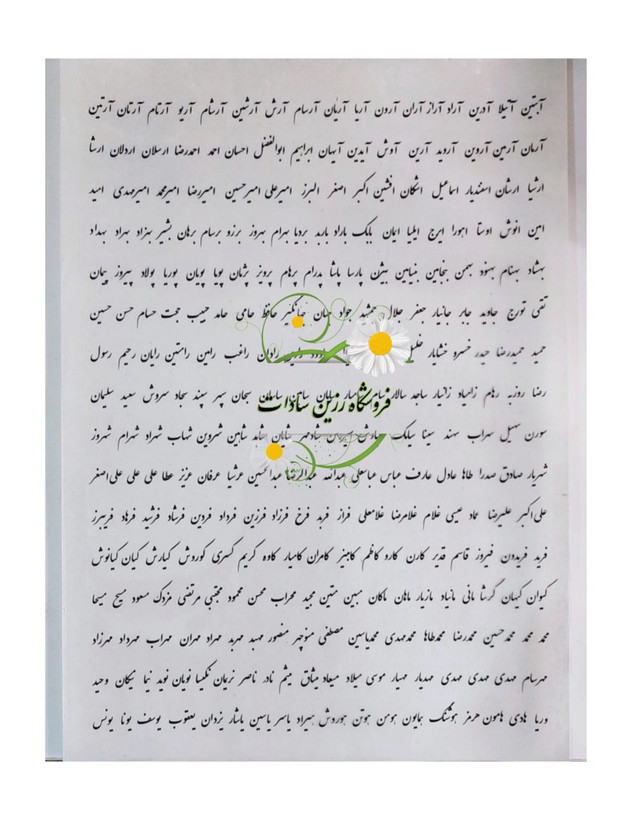 آبتین آتیلا آدرین آراد آراز آران آرون آریا آریان آرسام آرش آرشین آرشام آریو آرتام آرتان آرتین
آرمان آرمین آروین آروید آرین آوش آیدین آیهان ابراهیم ابوالفضل احسان احمد احمدرضا ارسلان اردلان ارشا
ارشیا ارشان اسفندیار اسماعیل اشکان افشین اکبر اصغر البرز امیرعلی امیرحسین امیررضا امیرمحمد امیرمهدی امید
امین انوش اوستا اهورا ایرج ایلیا ایمان بابک باراد باربد بردیا بهرام بهروز برزو برسام برهان بشیر بهزاد بهراد بهداد
بهشاد بهنام بهنود بهمن بنجامین بنیامین بیژن پارسا پاشا پدرام پرهام پرویز پژمان پویا پویان پوریا پولاد پیروز پیمان
تقی تورج جاوید جابر جانیار جعفر جلال جمشید جواد جهان جهانگیر حافظ حامی حامد حبیب حجت حسام حسن حسین
حمید حمیدرضا حیدر خسرو خشایار خلیل رادان راغب رامین راستین رایان رحیم رسول
رضا روزبه رهام زامیاد زانیار ساجد سالار سامان سبحان سپهر سپند سجاد سروش سعید سلیمان
فروشگاه رزین سادات
سورن سهیل سهراب سهند سینا سیامک شادمهر شایان شاهد شاهین شروین شهاب شهراد شهرام شهروز
شهریار صادق صدرا طاها عادل عارف عباس عباسعلی عبدالله عبدالرضا عبدالحسین عرشیا عرفان عزیز عطا علی علی علی‌اصغر
علی‌اکبر علیرضا عماد عیسی غلام غلامرضا غلامعلی فراز فربد فرخ فرزاد فرزین فرداد فردین فرشاد فرشید فرهاد فریبرز
فرید فریدون فیروز قاسم قدیر کارن کارو کاظم کامبیز کامران کامیار کاوه کریم کسری کوروش کیارش کیان کیانوش
کیوان کیهان گرشا مانی مانیاد مازیار ماهان ماکان مبین متین مجید محراب محسن محمود مجتبی مرتضی مزدک مسعود مسیح مسیحا
محمد محمد محمدحسین محمدرضا محمدطاها محمدمهدی محمدیاسین مصطفی منوچهر منصور مهبد مهربد مهراد مهران مهراب مهرداد مهرزاد
مهرسام مهدی مهدی مهدی مهدیار مهیار موسی میلاد میعاد میثاق میثم نادر ناصر نریمان نکیسا نویان نوید نیما نیکان وحید
وریا هادی هامون هرمز هوشنگ همایون هومن هوتن هوروش هیراد یاسر یاسین یاشار یزدان یعقوب یوسف یونا یونس